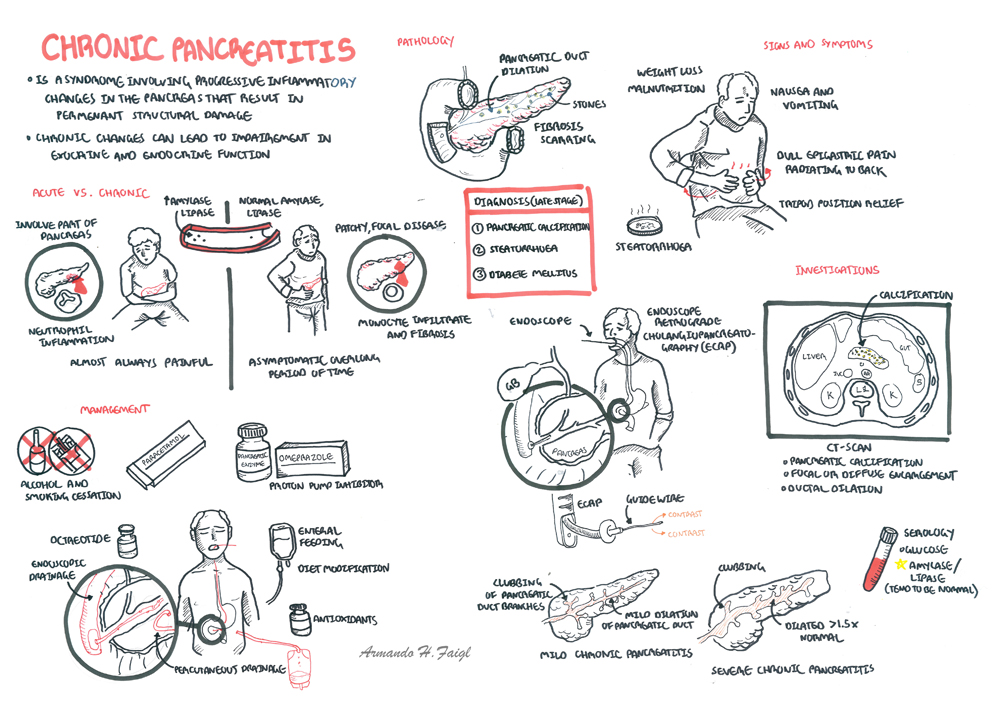 CHRONIC PANCREATITIS
• IS A SYNDROME INVOLVING PROGRESSIVE INFLAMMATORY
CHANGES IN THE PANCREAS THAT RESULT IN
PERMENANT STRUCTURAL DAMAGE
• CHRONIC CHANGES CAN LEAD TO IMPAIREMENT IN
EXOCRINE AND ENDOCRINE FUNCTION
PATHOLOGY
PANCREATIC DUCT
DILATION
STONES
FIBROSIS
SCARRING
SIGNS AND SYMPTOMS
WEIGHT LOSS
MALNUTRITION
NAUSEA AND
VOMITING
DULL EPIGASTRIC PAIN
RADIATING TO BACK
TRIPOD POSITION RELIEF
STEATORRHOEA
ACUTE VS. CHRONIC
INVOLVE PART OF
PANCREAS
↑AMYLASE
LIPASE
NORMAL AMYLASE,
LIPASE
PATCHY, FOCAL DISEASE
NEUTROPHIL
INFLAMMATION
ALMOST ALWAYS PAINFUL
MONOCYTE INFILTRATE
AND FIBROSIS
ASYMPTOMATIC OVER LONG
PERIOD OF TIME
DIAGNOSIS (LATE STAGE)
① PANCREATIC CALCIFICATION
② STEATORRHOEA
③ DIABETE MELLITUS
ENDOSCOPE
ENDOSCOPE
RETROGRADE
CHOLANGIOPANCREATO-
GRAPHY (ECRP)
GB
PANCREAS
ECRP
GUIDEWIRE
CONTRAST
CONTRAST
INVESTIGATIONS
CALCIFICATION
LIVER
GUT
IVC
S
K
L1
K
CT-SCAN
PANCREATIC CALCIFICATION
FOCAL OR DIFFUSE ENLARGEMENT
DUCTAL DILATION
MANAGEMENT
ALCOHOL AND
SMOKING CESSATION
PARACETAMOL
PANCREATIC
ENZYME
OMEPRAZOLE
PROTON PUMP INHIBITOR
OCTREOTIDE
ENDOSCOPIC
DRAINAGE
ENTERAL
FEEDING
DIET MODIFICATION
ANTIOXIDANTS
PERCUTANEOUS DRAINAGE
Armando H. Faigl
CLUBBING
OF PANCREATIC
DUCT BRANCHES
MILD DILATION
OF PANCREATIC DUCT
MILD CHRONIC PANCREATITIS
CLUBBING
DILATED >1.5x
NORMAL
SEVERE CHRONIC PANCREATITIS
SEROLOGY
GLUCOSE
AMYLASE/
LIPASE
(TEND TO BE NORMAL)